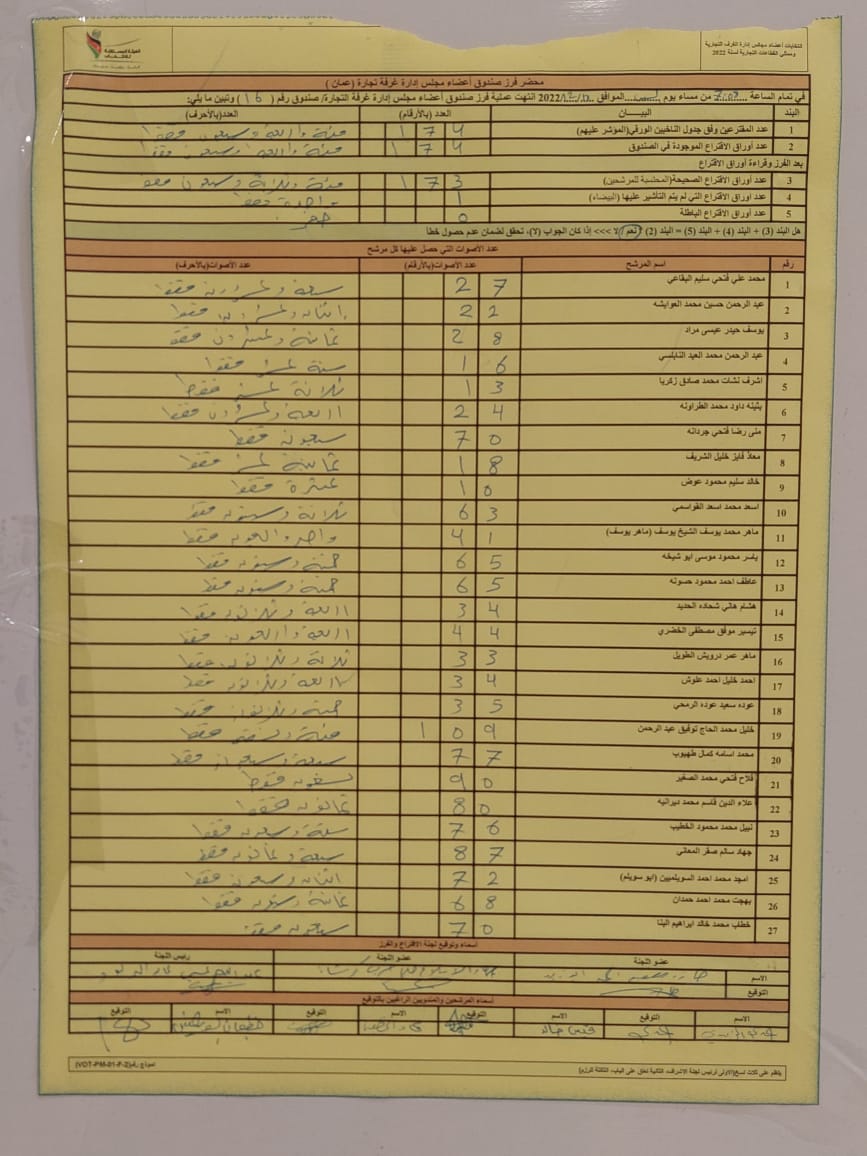 انتخابات أعضاء مجلس إدارة الغرف التجارية
وممثلي القطاعات التجارية لسنة 2022
الهيئة المستقلة للانتخاب
محضر فرز صندوق أعضاء مجلس إدارة غرفة تجارة (عمان)
في تمام الساعة من مساء يوم الموافق /2022 انتهت عملية فرز صندوق أعضاء مجلس إدارة غرفة التجارة/ صندوق رقم (16) وتبين ما يلي:
البند البيـــان العدد (بالأرقام) العدد(بالأحرف)
1 عدد المقترعين وفق جدول الناخبين الورقي(المؤشر عليهم) 174 مئة واربعة وسبعون فقط
2 عدد أوراق الاقتراع الموجودة في الصندوق 174 مئة واربعة وسبعون فقط
بعد الفرز وقراءة أوراق الاقتراع
3 عدد أوراق الاقتراع الصحيحة(المحتسبة للمرشحين) 173 مئة وثلاثة وسبعون فقط
4 عدد أوراق الاقتراع التي لم يتم التأشير عليها (البيضاء) 1 واحدة فقط
5 عدد أوراق الاقتراع الباطلة 0 صفر
هل البند (3) + البند (4) + البند (5) = البند (2) نعم /لا >>> إذا كان الجواب (لا)، تحقق لضمان عدم حصول خطأ
عدد الأصوات التي حصل عليها كل مرشح
رقم اسم المرشح عدد الأصوات(بالأرقام) عدد الأصوات(بالأحرف)
1 محمد علي فتحي سليم البقاعي 27 سبعة وعشرون فقط
2 عبد الرحمن حسين محمد العوايشه 22 اثنان وعشرون فقط
3 يوسف حيدر عيسى مراد 28 ثمانية وعشرون فقط
4 عبد الرحمن محمد العبد النابلسي 16 ستة عشر فقط
5 اشرف نشات محمد صادق زكريا 13 ثلاثة عشر فقط
6 بثينه داود محمد الطراونه 24 اربعة وعشرون فقط
7 منى رضا فتحي جردانه 70 سبعون فقط
8 معاذ فايز خليل الشريف 18 ثمانية عشر فقط
9 خالد سليم محمود عوض 10 عشرة فقط
10 اسعد محمد اسعد القواسمي 63 ثلاثة وستون فقط
11 ماهر محمد يوسف الشيخ يوسف (ماهر يوسف) 41 واحد واربعون فقط
12 ياسر محمود موسى ابو شيخه 65 خمسة وستون فقط
13 عاطف احمد محمود حسونه 65 خمسة وستون فقط
14 هشام هاني شحاده الحديد 34 اربعة وثلاثون فقط
15 تيسير موفق مصطفى الخضري 44 اربعة واربعون فقط
16 ماهر عمر درويش الطويل 33 ثلاثة وثلاثون فقط
17 احمد خليل احمد علوش 34 اربعة وثلاثون فقط
18 عوده سعيد عوده الرمحي 35 خمسة وثلاثون فقط
19 خليل محمد الحاج توفيق عبد الرحمن 109 مئة وتسعة فقط
20 محمد اسامه كمال طهبوب 77 سبعة وسبعون فقط
21 فلاح فتحي محمد الصغير 90 تسعون فقط
22 علاء الدين قاسم محمد ديرانيه 80 ثمانون فقط
23 نبيل محمد محمود الخطيب 76 ستة وسبعون فقط
24 جهاد سالم صقر المعاني 87 سبعة وثمانون فقط
25 امجد محمد احمد السويلميين (ابو سويلم) 72 اثنان وسبعون فقط
26 بهجت محمد احمد حمدان 68 ثمانية وستون فقط
27 خطاب محمد خالد ابراهيم البنا 70 سبعون فقط
أسماء وتوقيع لجنة الاقتراع والفرز
عضو اللجنة عضو اللجنة رئيس اللجنة
الاسم
التوقيع
أسماء المرشحين والمندوبين الراغبين بالتوقيع
الاسم التوقيع الاسم التوقيع الاسم التوقيع الاسم التوقيع
ينظم على ثلاث نسخ(الاولى لرئيس لجنة الاشراف، الثانية تعلق على الباب، الثالثة للرزم)
نموذج رقم(VOT-PM-01-F-2)